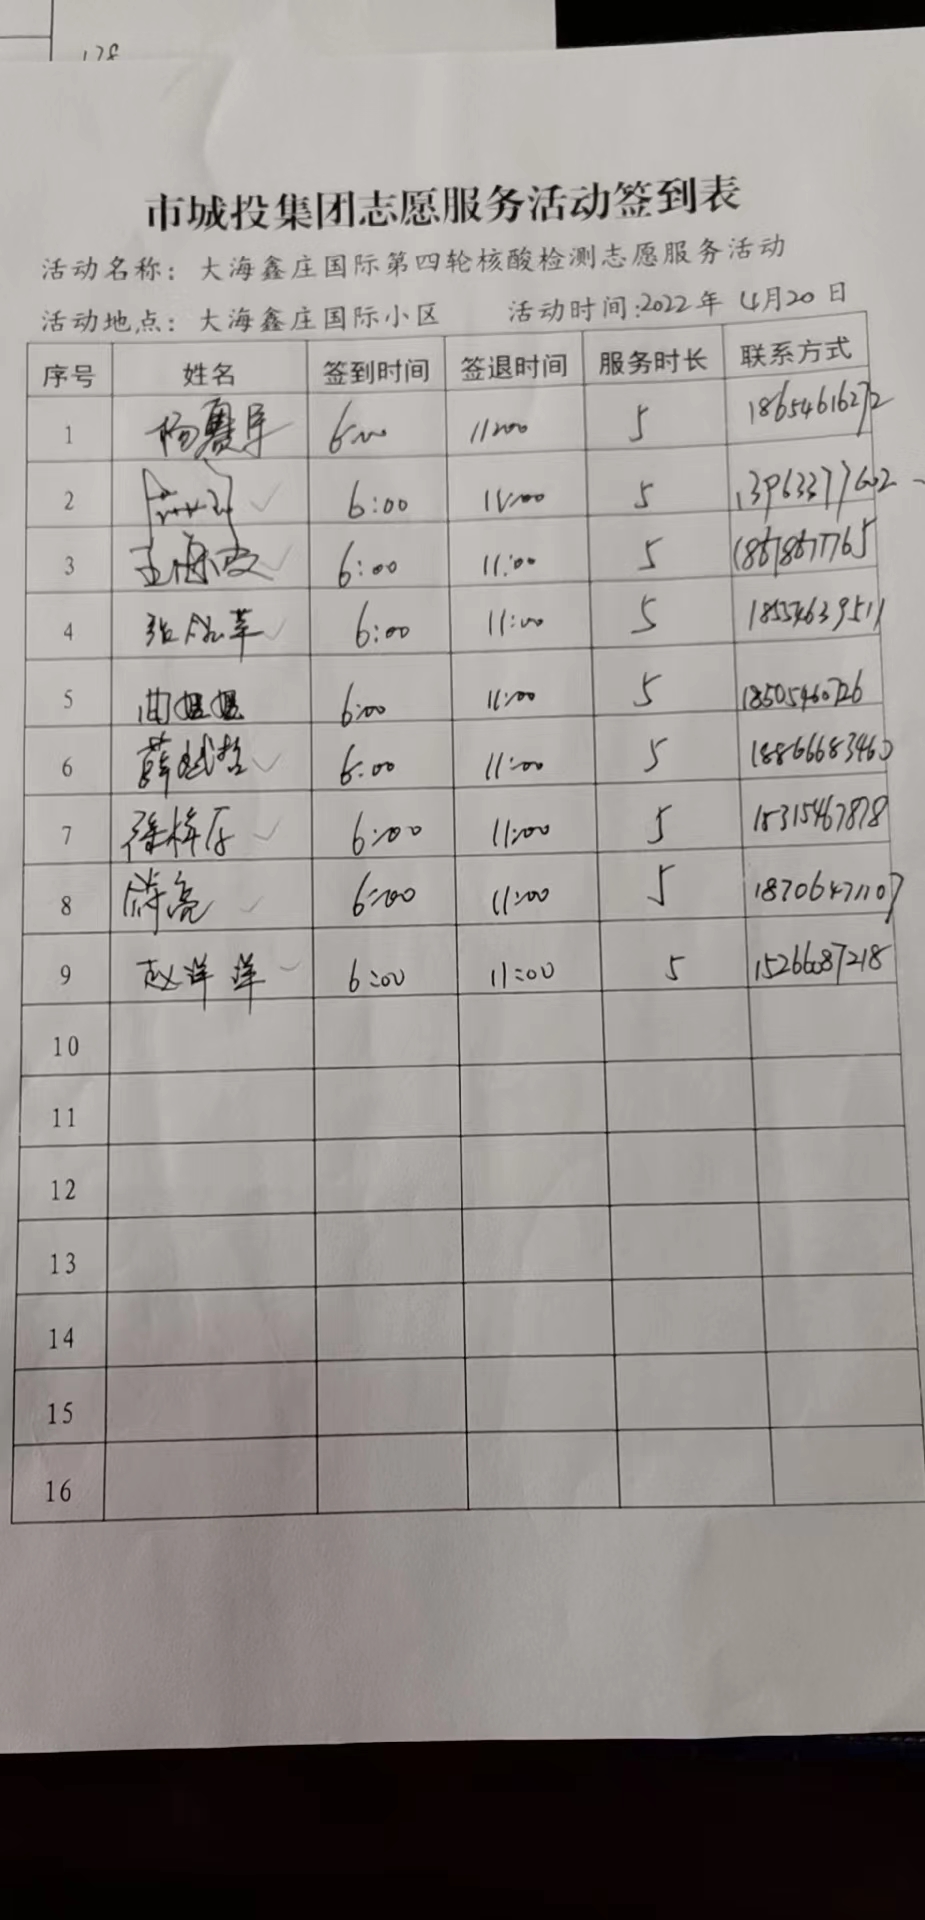 128
市城投集团志愿服务活动签到表
活动名称：大海鑫庄国际第四轮核酸检测志愿服务活动
活动地点：大海鑫庄国际小区 活动时间：2022年 4月20日
序号 姓名 签到时间 签退时间 服务时长 联系方式
1 杨 6:00 11:00 5 18654616272
2 6:00 11:00 5 13963377602
3 王 6:00 11:00 5 18678677765
4 张 6:00 11:00 5 18554639511
5 曲 6:00 11:00 5 18505460726
6 薛斌哲 6:00 11:00 5 18866683460
7 徐梓 6:00 11:00 5 15315467878
8 亮 6:00 11:00 5 18706471107
9 赵洋洋 6:00 11:00 5 15266087218
10
11
12
13
14
15
16